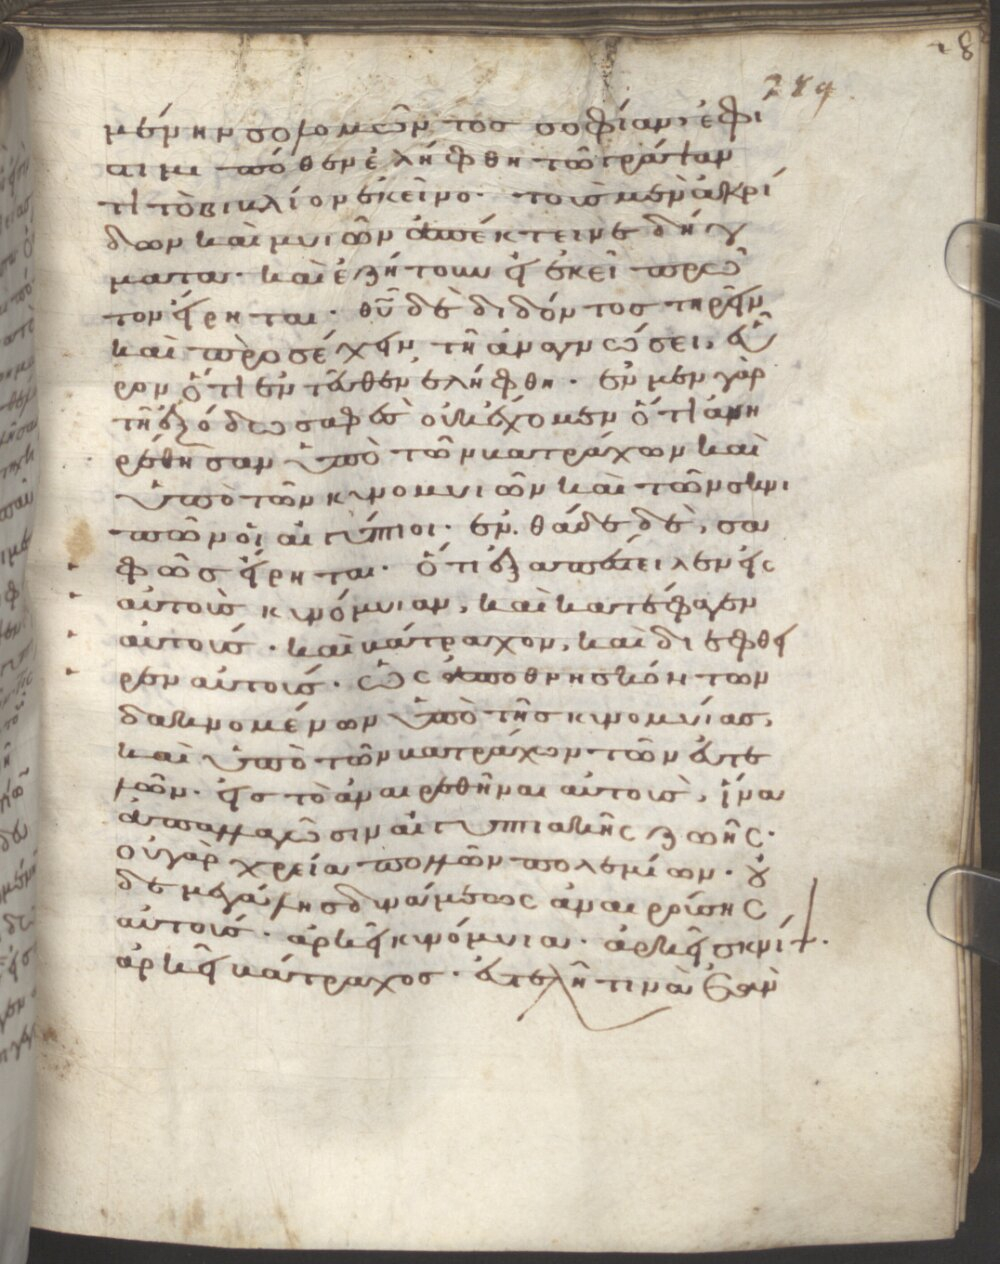 289
28
μένην σολομῶντος σοφίαν, ἐφί
αι μι πόθεν ἐλήφθη τῶ γράψαν
τι τὸ βιβλίον ἐκεῖνο· τοὺς μὲν ἀκρί
δων καὶ μυιῶν ἀπέκτεινε δήγ
ματα· καὶ ἐζήτουν εἰ ἐκεῖ πρῶ
τον εἴρηται· θῡ δὲ διδόντος τηρεῖν
καὶ προσέχειν τῆ ἀναγνώσει, εὗ
ρον ὅτι ἐντεῦθεν ἐλήφθη· ἐν μὲν γὰρ
τῆ ἐξόδω σαφὲς οὐκ ἔχομεν ὅτι ἀνη
ρέθησαν ὑπὸ τῶν βατράχων καὶ
ὑπὸ τῶν κυνομυιῶν καὶ τῶν σκνι
πῶν οἱ αἰγύπτιοι· ἐνθάδε δὲ, σα
φῶς εἴρηται· ὅτι ἐξαπέστειλεν εἰς
αὐτοὺς κυνόμυιαν, καὶ κατέφαγεν
αὐτούς· καὶ βάτραχον, καὶ διέφθει
ρεν αὐτούς· ὡς ἀποθνησκόντων
δακνομένων ὑπὸ τῆς κυνομυίας,
καὶ ὑπὸ τῶν βατράχων τῶν εὐτε
λῶν· εἰς τὸ ἀναιρεθῆναι αὐτοὺς, ἵνα
ἀπαλλαγῶσιν αἰγυπτιακῆς ζωῆς·
οὐ γὰρ χρεία πολλῶν πολεμίων· οὐ
δὲ μεγάλης δυνάμεως ἀναιρούσης
αὐτούς· ἀρκεῖ κυνόμυια· ἀρκεῖ σκνίψ·
ἀρκεῖ βάτραχος· εὐτελῆ τινὰ ἐὰν